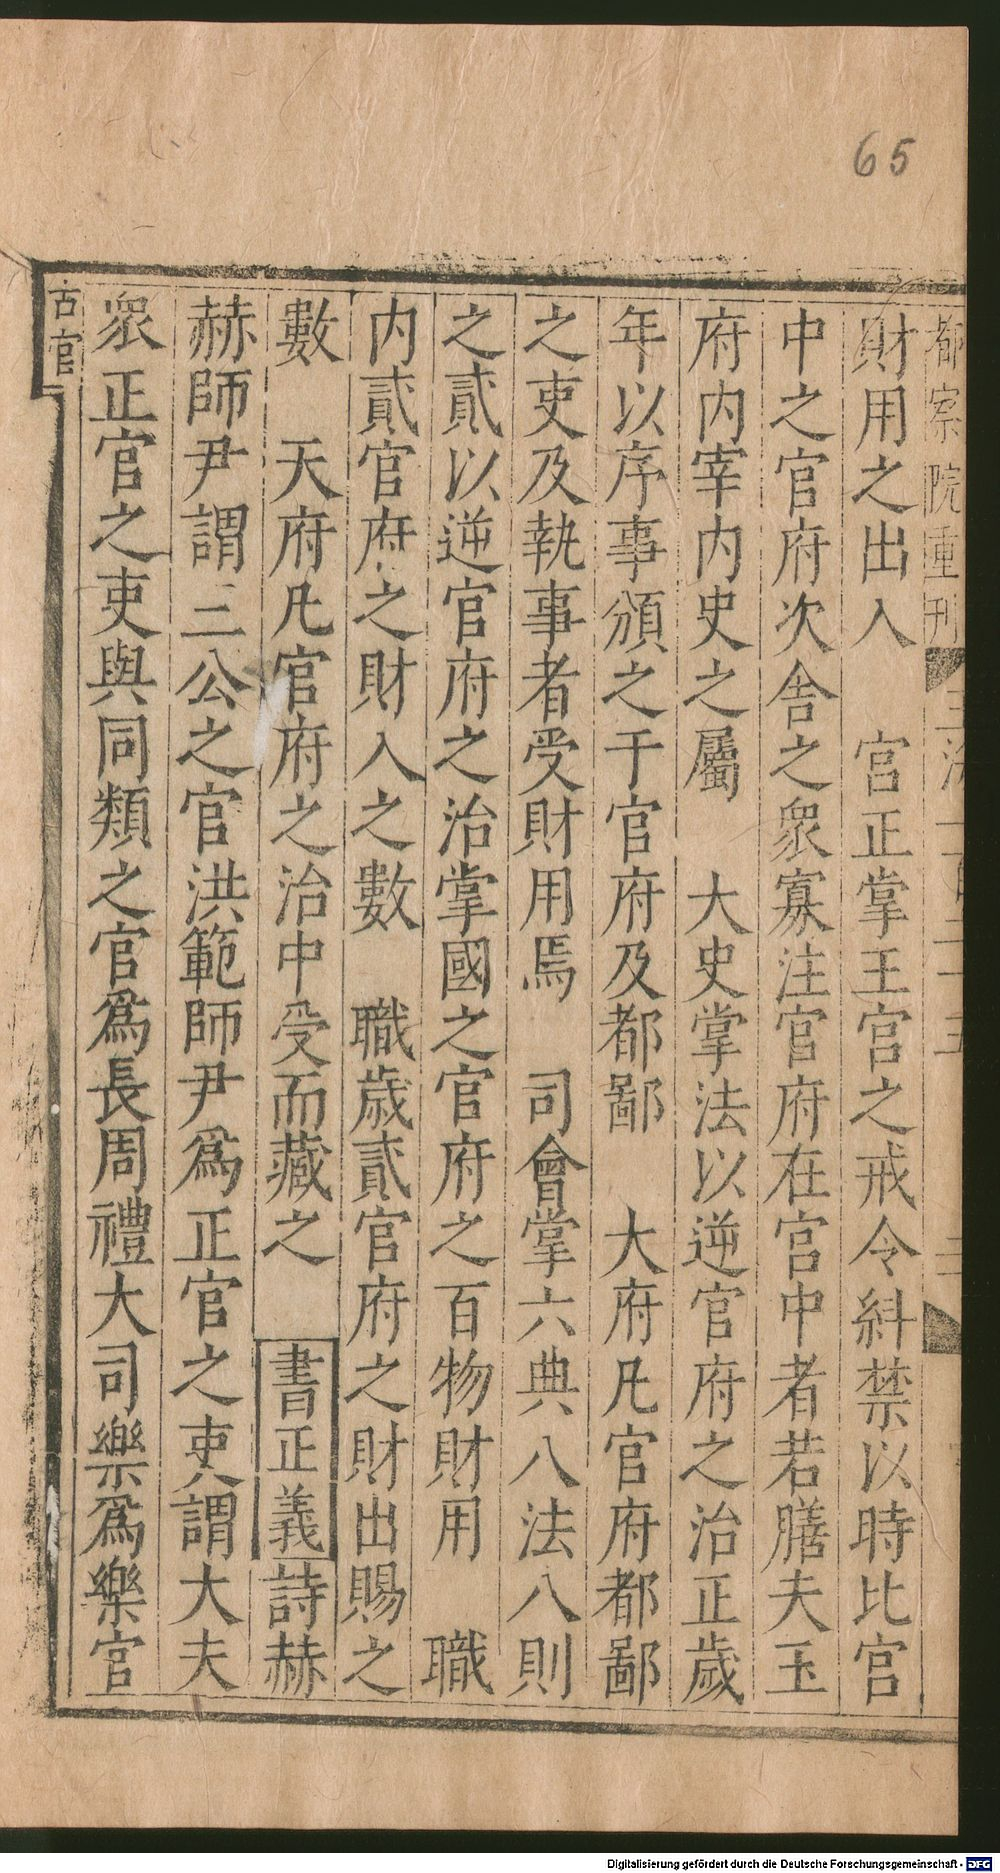 65
都察院重刊
財用之出入　宮正掌王宮之戒令糾禁以時比宮
中之官府次舍之衆寡注官府在宮中者若膳夫玉
府内宰内史之屬　大史掌法以逆官府之治正歲
年以序事頒之于官府及都鄙　大府凡官府都鄙
之吏及執事者受財用焉　司會掌六典八法八則
之貳以逆官府之治掌國之官府之百物財用　職
内貳官府之財入之數　職歲貳官府之財出賜之
數　天府凡官府之治中受而藏之　書正義詩赫
赫師尹謂三公之官洪範師尹爲正官之吏謂大夫
衆正官之吏與同類之官爲長周禮大司樂爲樂官
古官
Digitalisierung gefördert durch die Deutsche Forschungsgemeinschaft - DFG